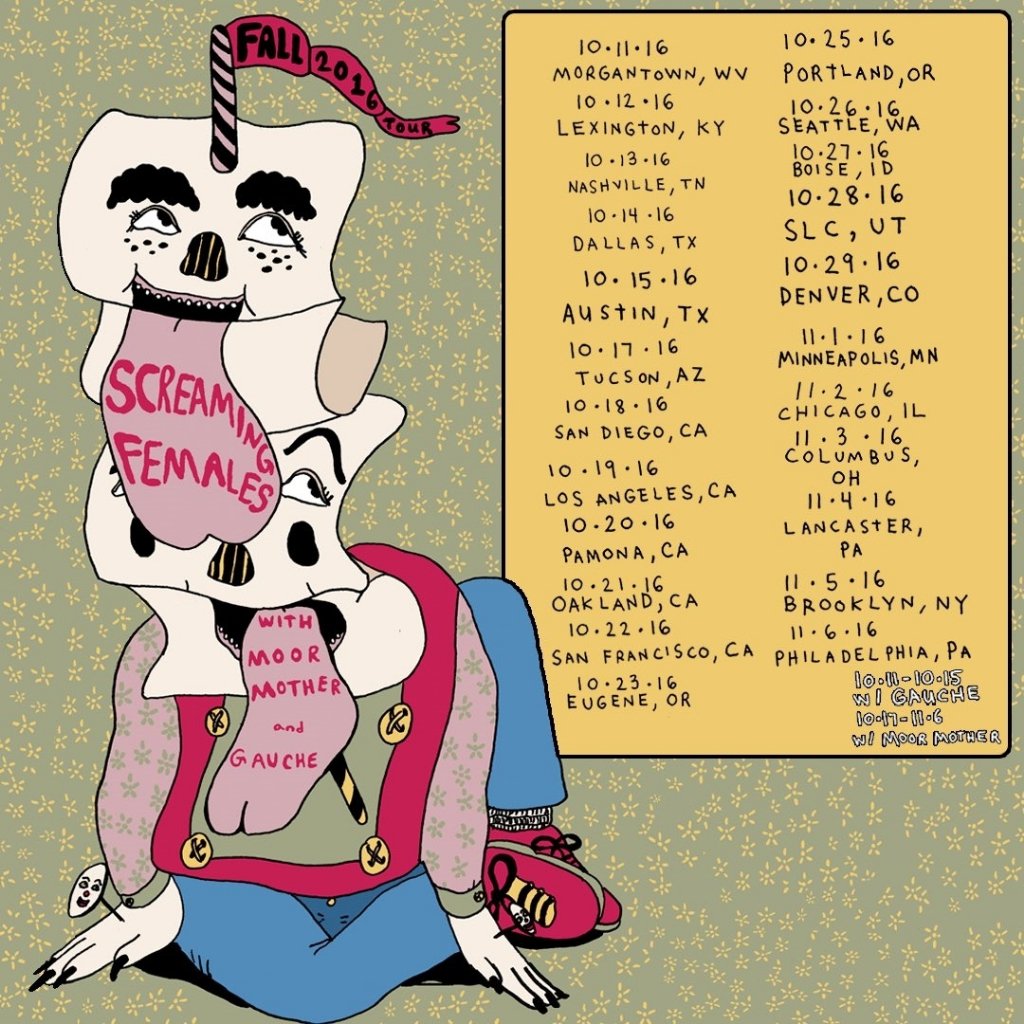 FALL 2016 TOUR
SCREAMING
FEMALES
WITH
MOOR
MOTHER
and
GAUCHE
10.11.16
MORGANTOWN, WV
10.12.16
LEXINGTON, KY
10.13.16
NASHVILLE, TN
10.14.16
DALLAS, TX
10.15.16
AUSTIN, TX
10.17.16
TUCSON, AZ
10.18.16
SAN DIEGO, CA
10.19.16
LOS ANGELES, CA
10.20.16
PAMONA, CA
10.21.16
OAKLAND, CA
10.22.16
SAN FRANCISCO, CA
10.23.16
EUGENE, OR
10.25.16
PORTLAND, OR
10.26.16
SEATTLE, WA
10.27.16
BOISE, ID
10.28.16
SLC, UT
10.29.16
DENVER, CO
11.1.16
MINNEAPOLIS, MN
11.2.16
CHICAGO, IL
11.3.16
COLUMBUS,
OH
11.4.16
LANCASTER,
PA
11.5.16
BROOKLYN, NY
11.6.16
PHILADELPHIA, PA
10.11-10.15
W/ GAUCHE
10.17-11.6
W/ MOOR MOTHER